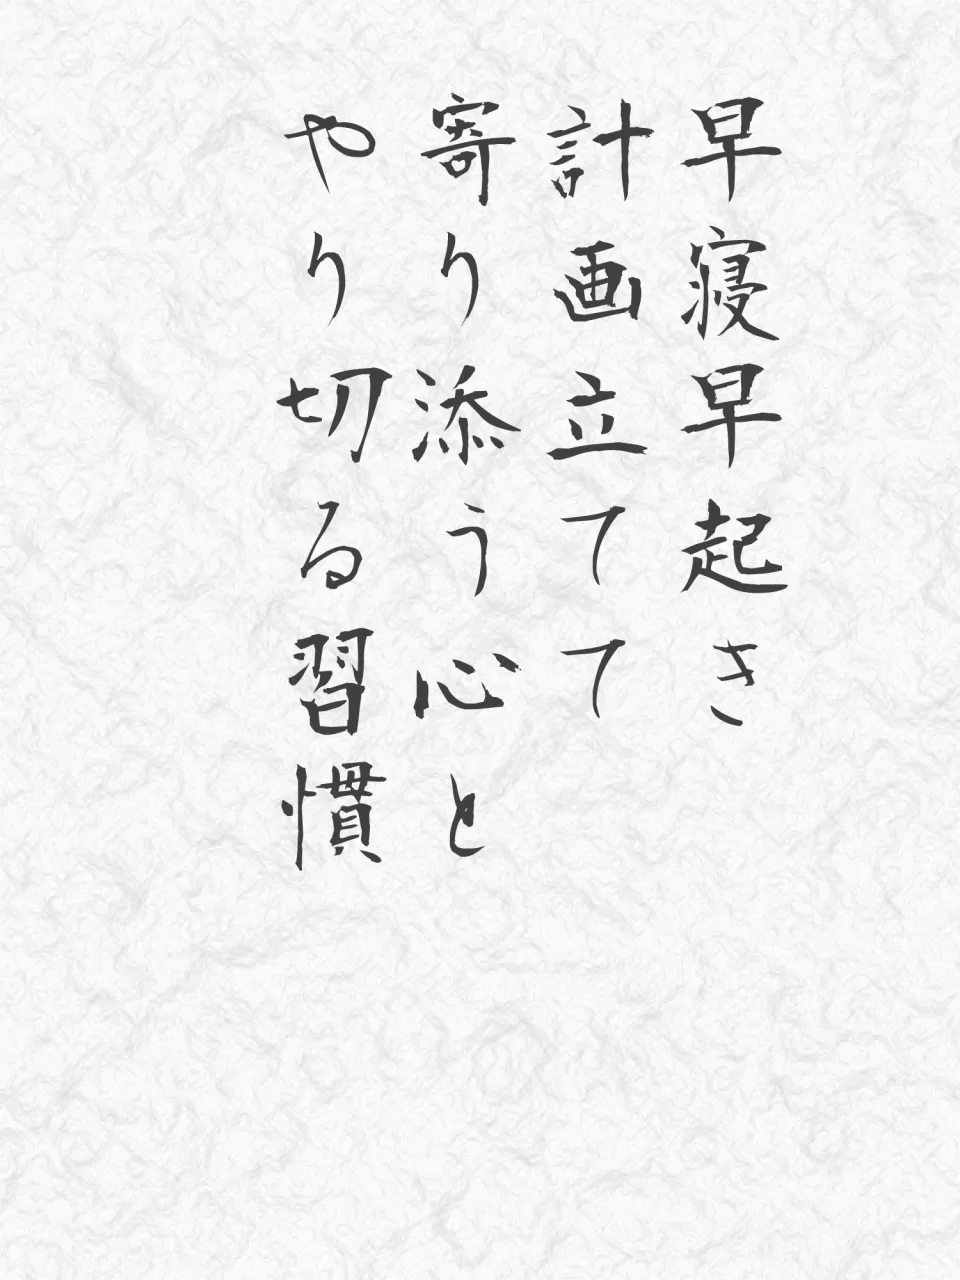 早寝早起き
計画立てて
寄り添う心と
やり切る習慣